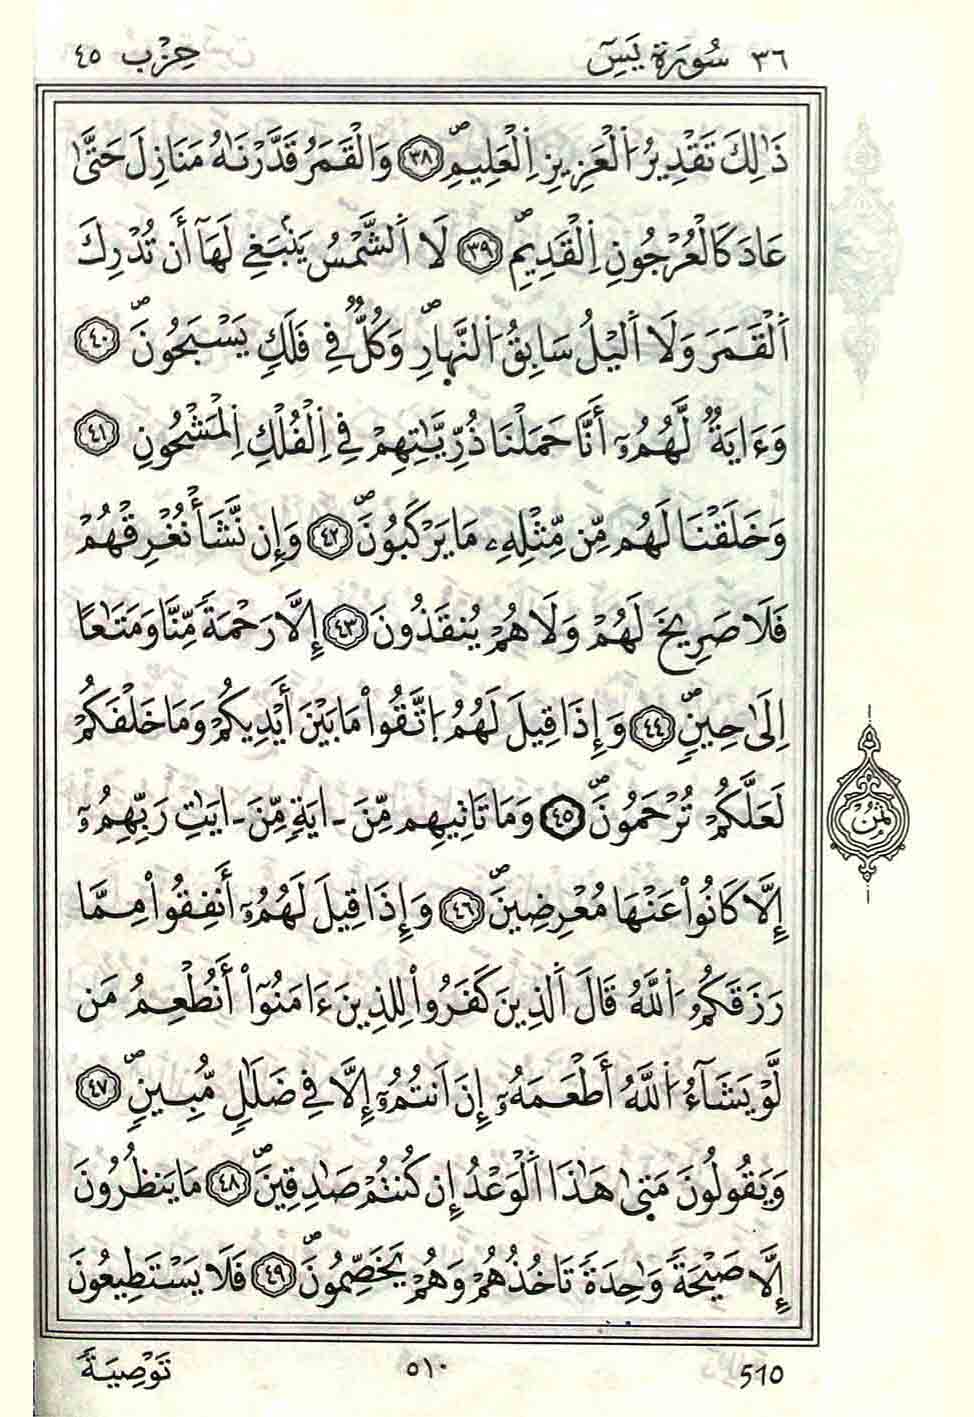 ٣٦ سُورَةُ يَسِٓ حِزْب ٤٥
ذَٰلِكَ تَقْدِيرُ اُ۬لْعَزِيزِ اِ۬لْعَلِيمِۖ ٣٨ وَالْقَمَرُ قَدَّرْنَٰهُ مَنَازِلَ حَتَّىٰ
عَادَ كَالْعُرْجُونِ اِ۬لْقَدِيمِۖ ٣٩ لَا اَ۬لشَّمْسُ يَنۢبَغِے لَهَآ أَن تُدْرِكَ
اَ۬لْقَمَرَ وَلَا اَ۬ليْلُ سَابِقُ اُ۬لنَّهارِۖ وَكُلّٞ فِے فَلَكٖ يَسْبَحُونَۖ ٤٠
وَءَايَةٞ لَّهُمُۥٓ أَنَّا حَمَلْنَا ذُرِّيَّٰتِهِمْ فِے اِ۬لْفُلْكِ اِ۬لْمَشْحُونِ ٤١
وَخَلَقْنَا لَهُم مِّن مِّثْلِهِۦ مَا يَرْكَبُونَۖ ٤٢ وَإِن نَّشَأْ نُغْرِقْهُمْ
فَلَا صَرِيخَ لَهُمْ وَلَا هُمْ يُنقَذُونَ ٤٣ إِلَّا رَحْمَةٗ مِّنَّا وَمَتَٰعاً
اِلَىٰ حِينٖۖ ٤٤ وَإِذَا قِيلَ لَهُمُ اُ۪تَّقُواْ مَا بَيْنَ أَيْدِيكُمْ وَمَا خَلْفَكُمْ
لَعَلَّكُمْ تُرْحَمُونَۖ ٤٥ وَمَا تَاتِيهِم مِّنَ ـ ايَةٖ مِّنَ ـ ايَٰتِ رَبِّهِمُۥٓ
إِلَّا كَانُواْ عَنْهَا مُعْرِضِينَۖ ٤٦ وَإِذَا قِيلَ لَهُمُۥٓ أَنفِقُواْ مِمَّا
رَزَقَكُمُ اُ۬للَّهُ قَالَ اَ۬لذِينَ كَفَرُواْ لِلذِينَ ءَامَنُوٓاْ أَنُطْعِمُ مَن
لَّوْ يَشَآءُ اُ۬للَّهُ أَطْعَمَهُۥٓ إِنَ اَنتُمُۥٓ إِلَّا فِے ضَلَٰلٖ مُّبِينٖۖ ٤٧
وَيَقُولُونَ مَتَىٰ هَٰذَا اَ۬لْوَعْدُ إِن كُنتُمْ صَٰدِقِينَۖ ٤٨ مَا يَنظُرُونَ
إِلَّا صَيْحَةٗ وَٰحِدَةٗ تَاخُذُهُمْ وَهُمْ يَخَصِّمُونَۖ ٤٩ فَلَا يَسْتَطِيعُونَ
ثُمُن
510 ٥١٠ تَوْصِيَةٗ